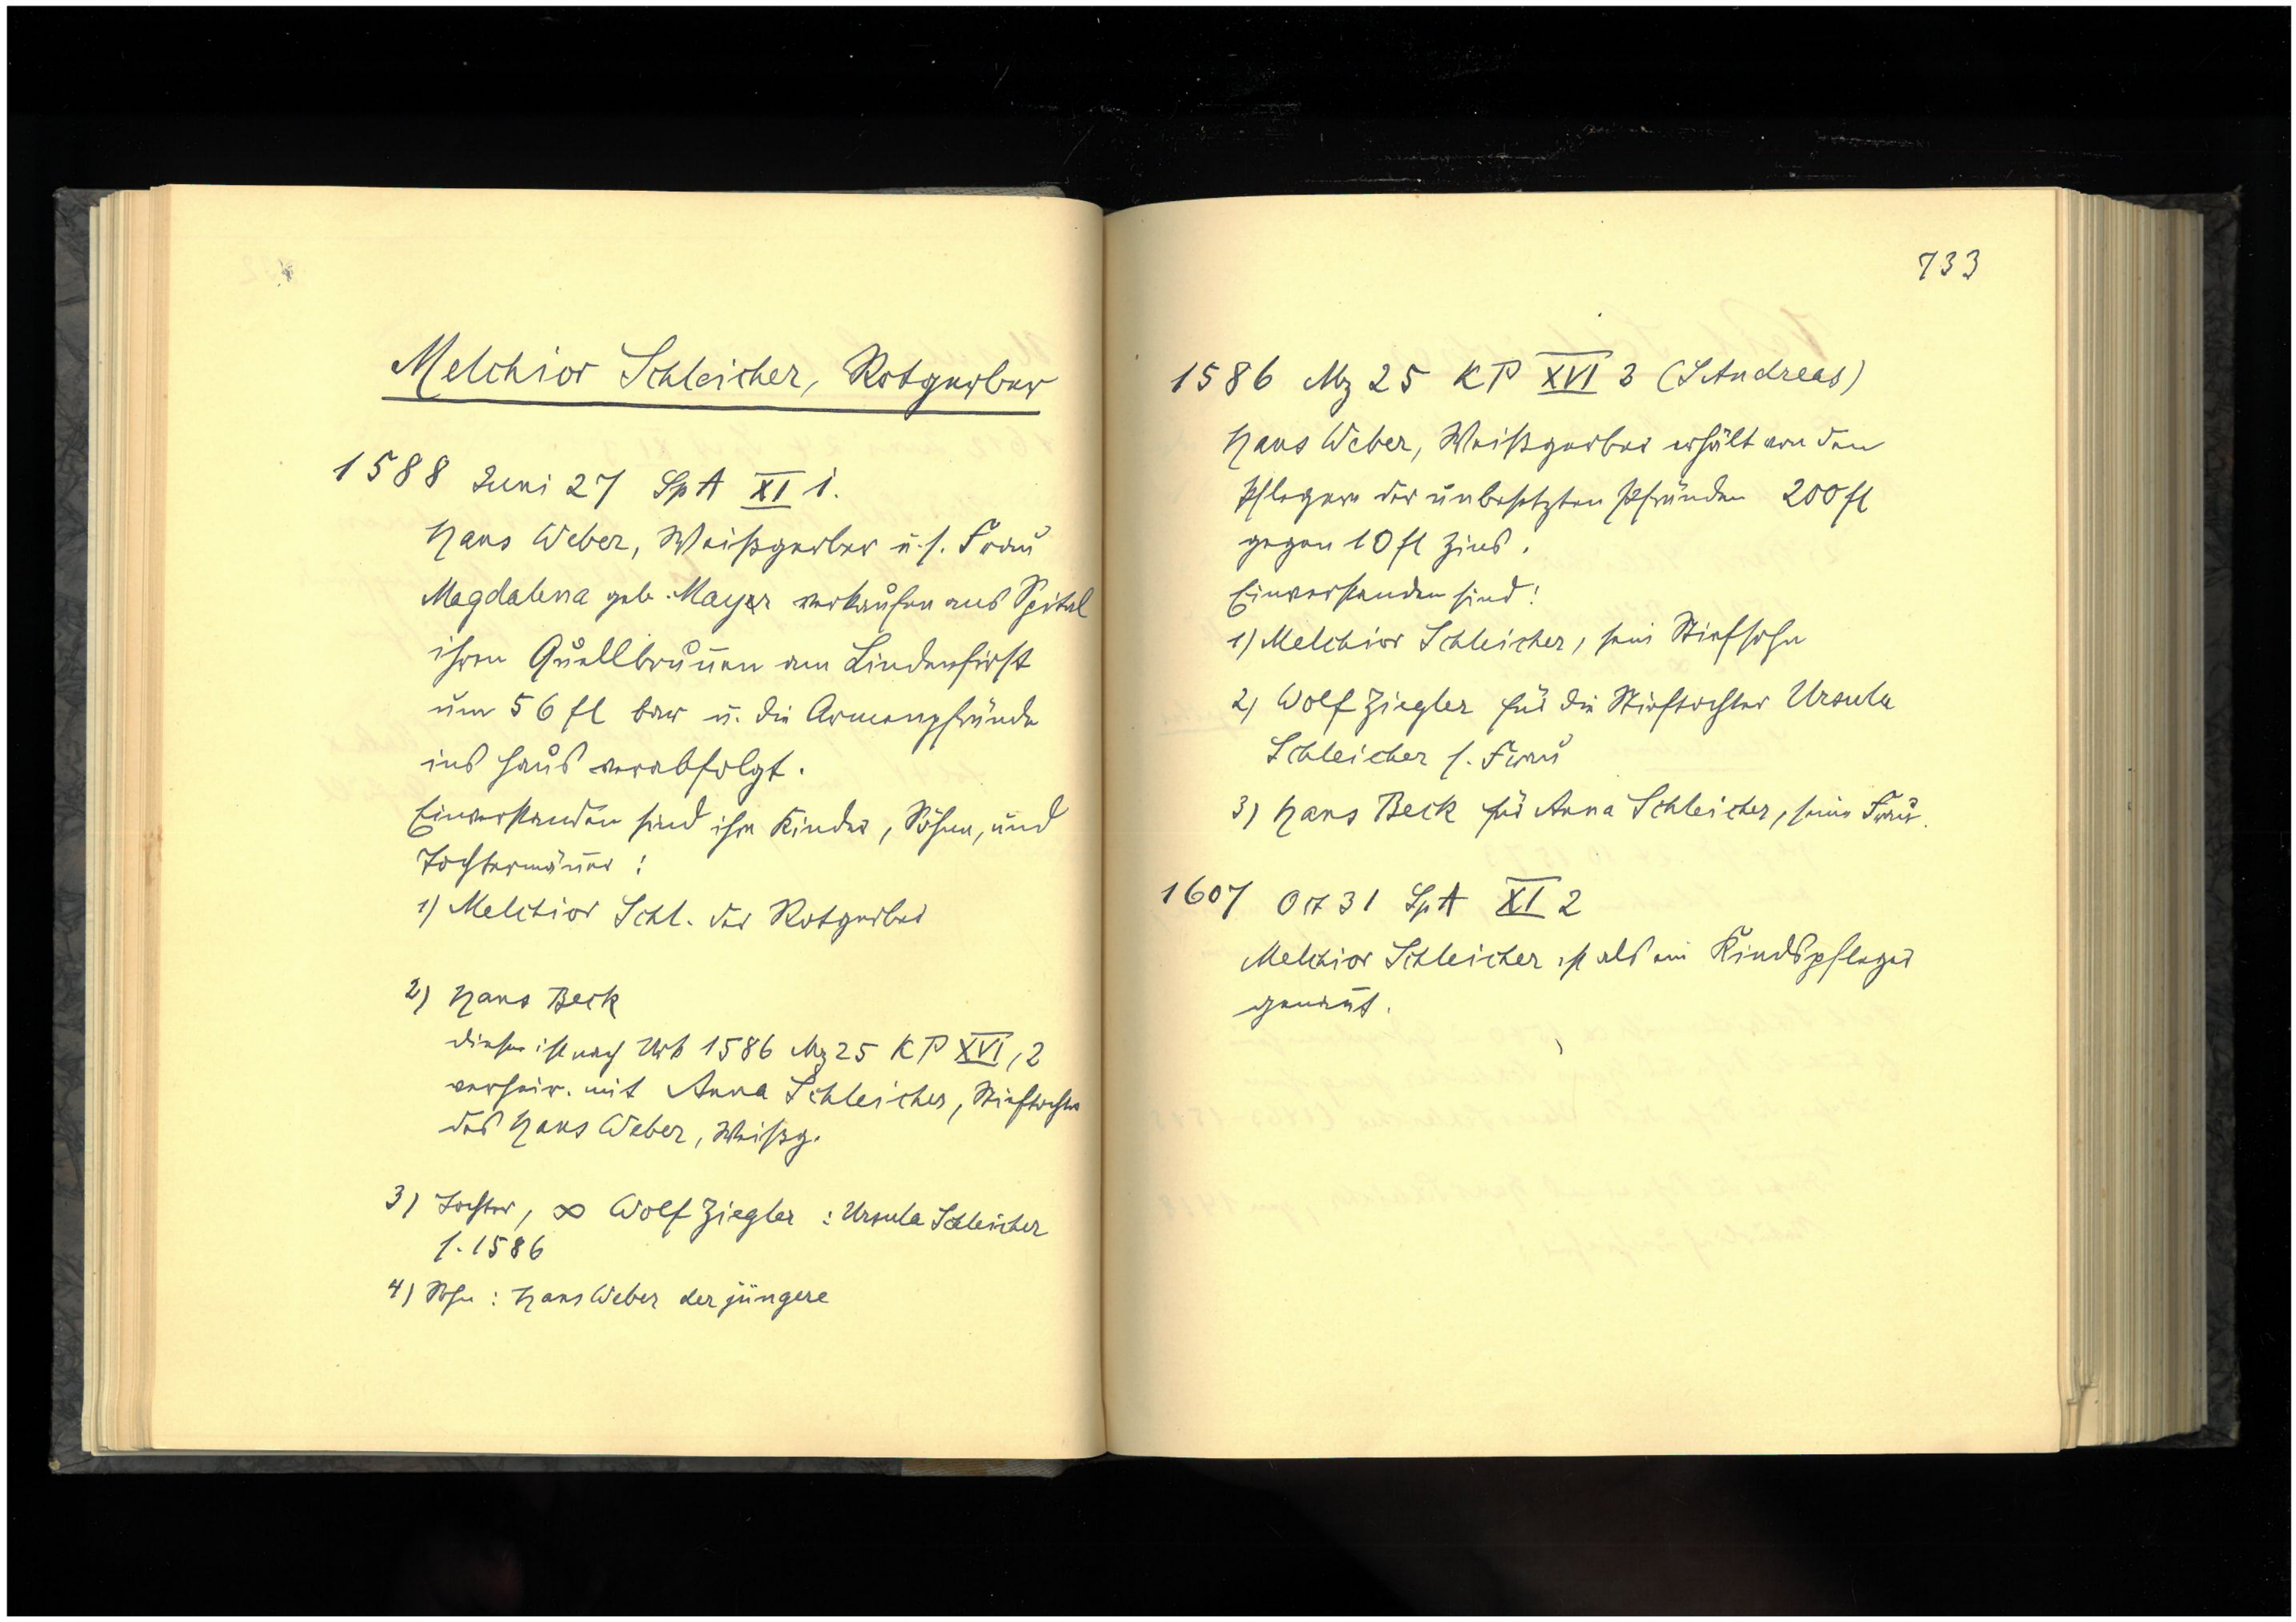 Melchior Schleicher, Rotgerber
1588 Juni 27 Sp A XI 1.
Hans Weber, Weißgerber u. s. Frau
Magdalena geb. Mayer verkaufen ans Spital
ihren Quellbrunnen am Lindenfirst
um 56 fl bar u. die Armenpfründe
ins Haus verabfolgt.
Einverstanden sind ihre Kinder, Söhne, und
Tochtermänner:
1) Melchior Schl. der Rotgerber
2) Hans Beck
dieser ist nach Urk 1586 Mz 25 KP XVI, 2
verheir. mit Anna Schleicher, Stieftochter
des Hans Weber, Weißg.
3) Tochter, ∞ Wolf Ziegler : Ursula Schleicher
s. 1586
4) Sohn : Hans Weber der jüngere
733
1586 Mz 25 KP XVI 3 (S Andreas)
Hans Weber, Weißgerber erhält von den
Pflegern der unbesetzten Pfründen 200 fl
gegen 10 fl Zins.
Einverstanden sind:
1) Melchior Schleicher, sein Stiefsohn
2) Wolf Ziegler für die Stieftochter Ursula
Schleicher s. Frau
3) Hans Beck für Anna Schleicher, seine Frau.
1607 Oct 31 Sp A XI 2
Melchior Schleicher ist als ein Kindspfleger
genannt.